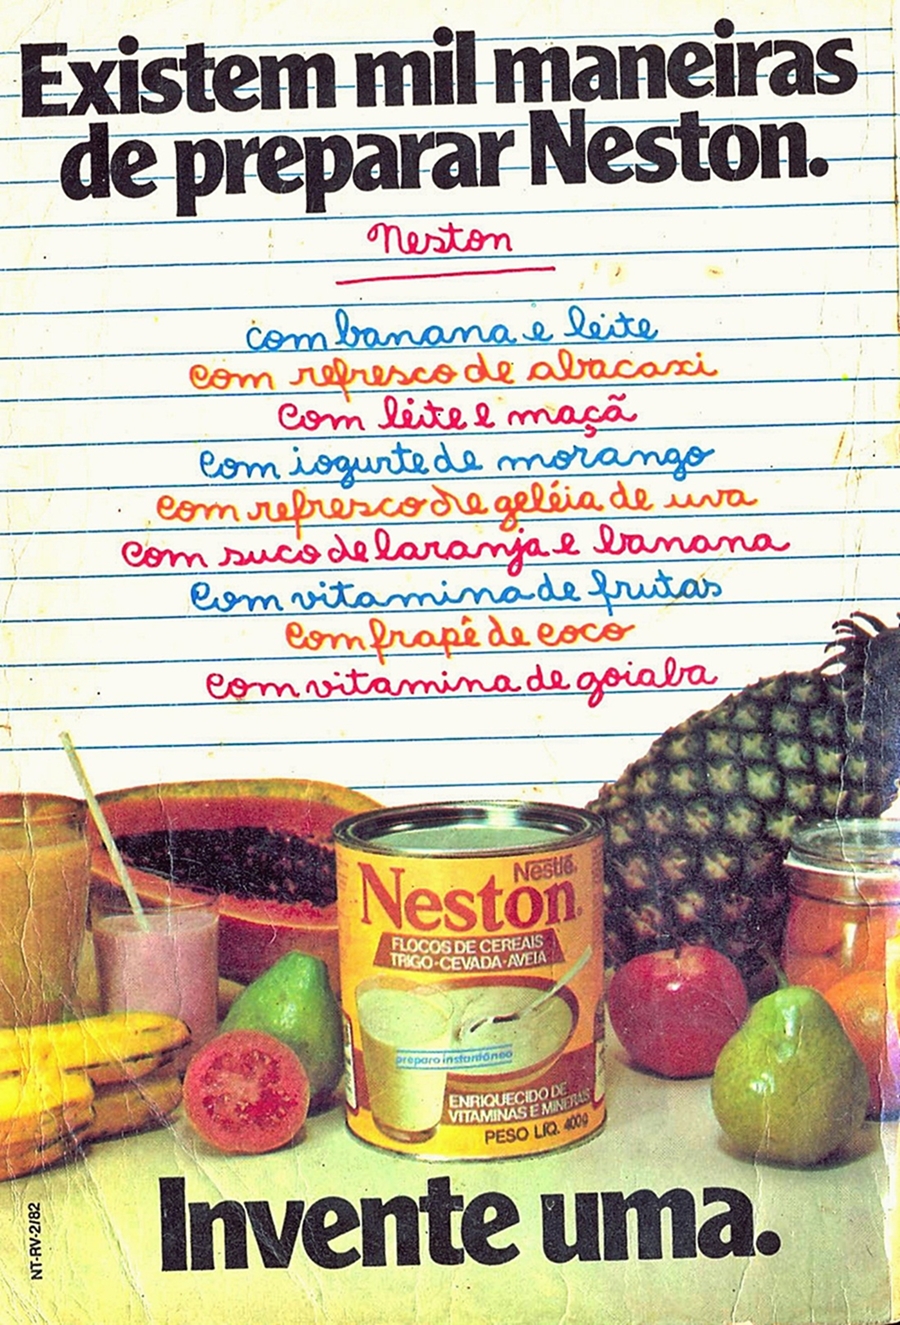 Existem mil maneiras
de preparar Neston.
Neston
com banana e leite
com refresco de abacaxi
com leite e maçã
com iogurte de morango
com refresco de geléia de uva
com suco de laranja e banana
com vitamina de frutas
com frapê de coco
com vitamina de goiaba
Nestlé
Neston.
FLOCOS DE CEREAIS
TRIGO-CEVADA-AVEIA
preparo instantâneo
ENRIQUECIDO DE
VITAMINAS E MINERAIS
PESO LÍQ. 400g
Invente uma.
NT-RV-2/82